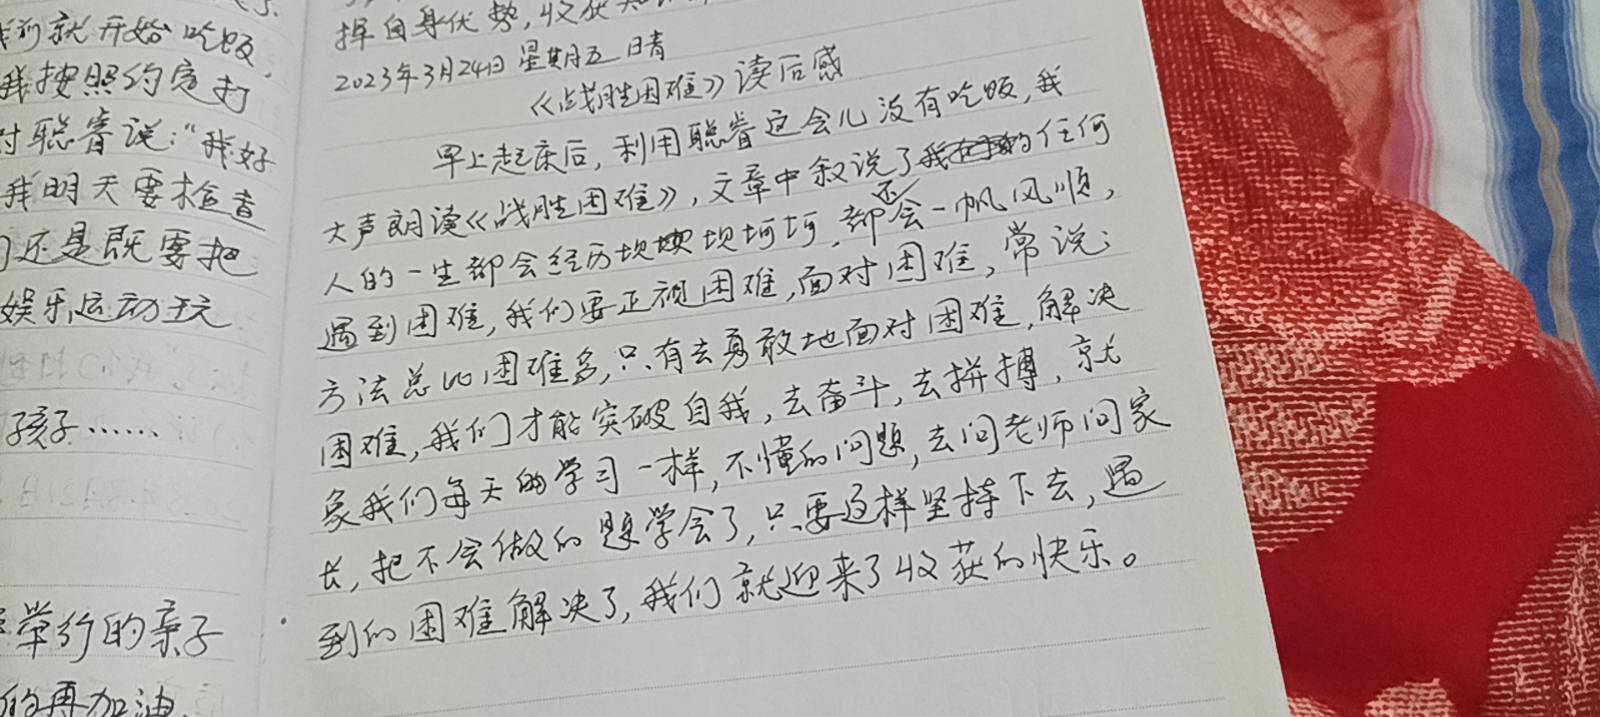 我们就开始吃饭,
我按照约定打
对聪睿说:“我好
我明天要检查
们还是既要把
娱乐,运动玩
孩子……
举行的亲子
的再加油,
择自身优势,收获
2023年3月24日 星期五 晴
《战胜困难》读后感
早上起床后,利用聪睿这会儿没有吃饭,我
大声朗读《战胜困难》,文章中叙说了任何
人的一生都会经历坎坝坷坷,都还会一帆风顺,
遇到困难,我们要正视困难,面对困难,常说:
方法总比困难多,只有去勇敢地面对困难,解决
困难,我们才能突破自我,去奋斗,去拼搏,就
象我们每天的学习一样,不懂的问题,去问老师问家
长,把不会做的题学会了,只要这样坚持下去,遇
到的困难解决了,我们就迎来了收获的快乐。